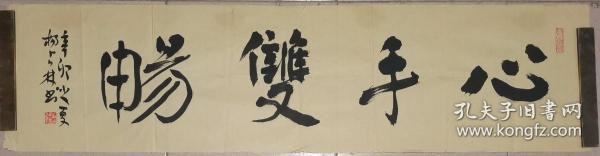 心手雙暢
辛卯之夏
孔夫子旧书网
www.kongfz.com